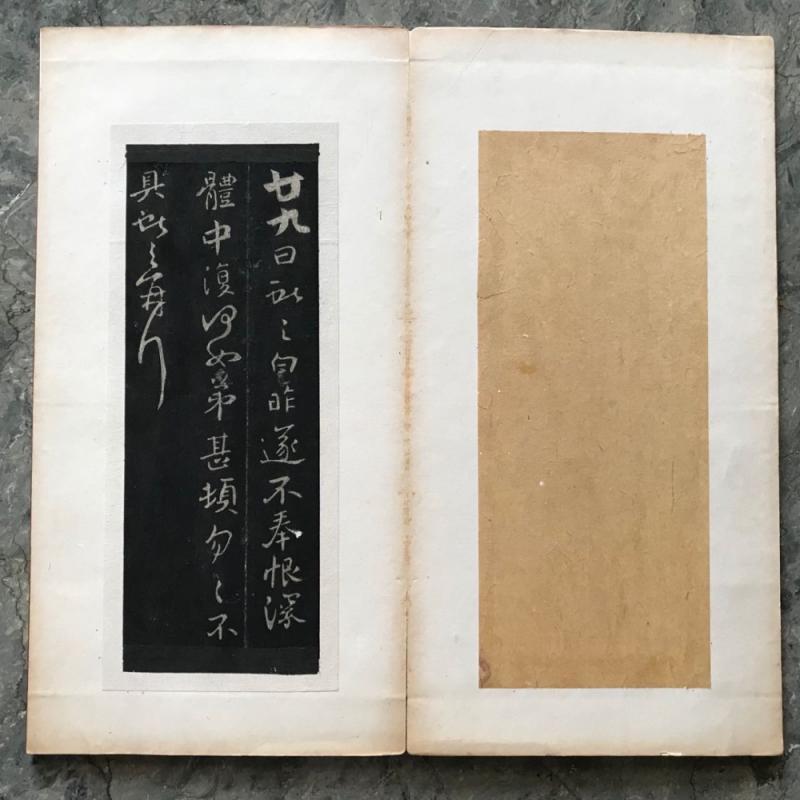 廿九日獻之白昨遂不奉恨深
體中復何如弟甚頓勿〻不
具獻之再拜